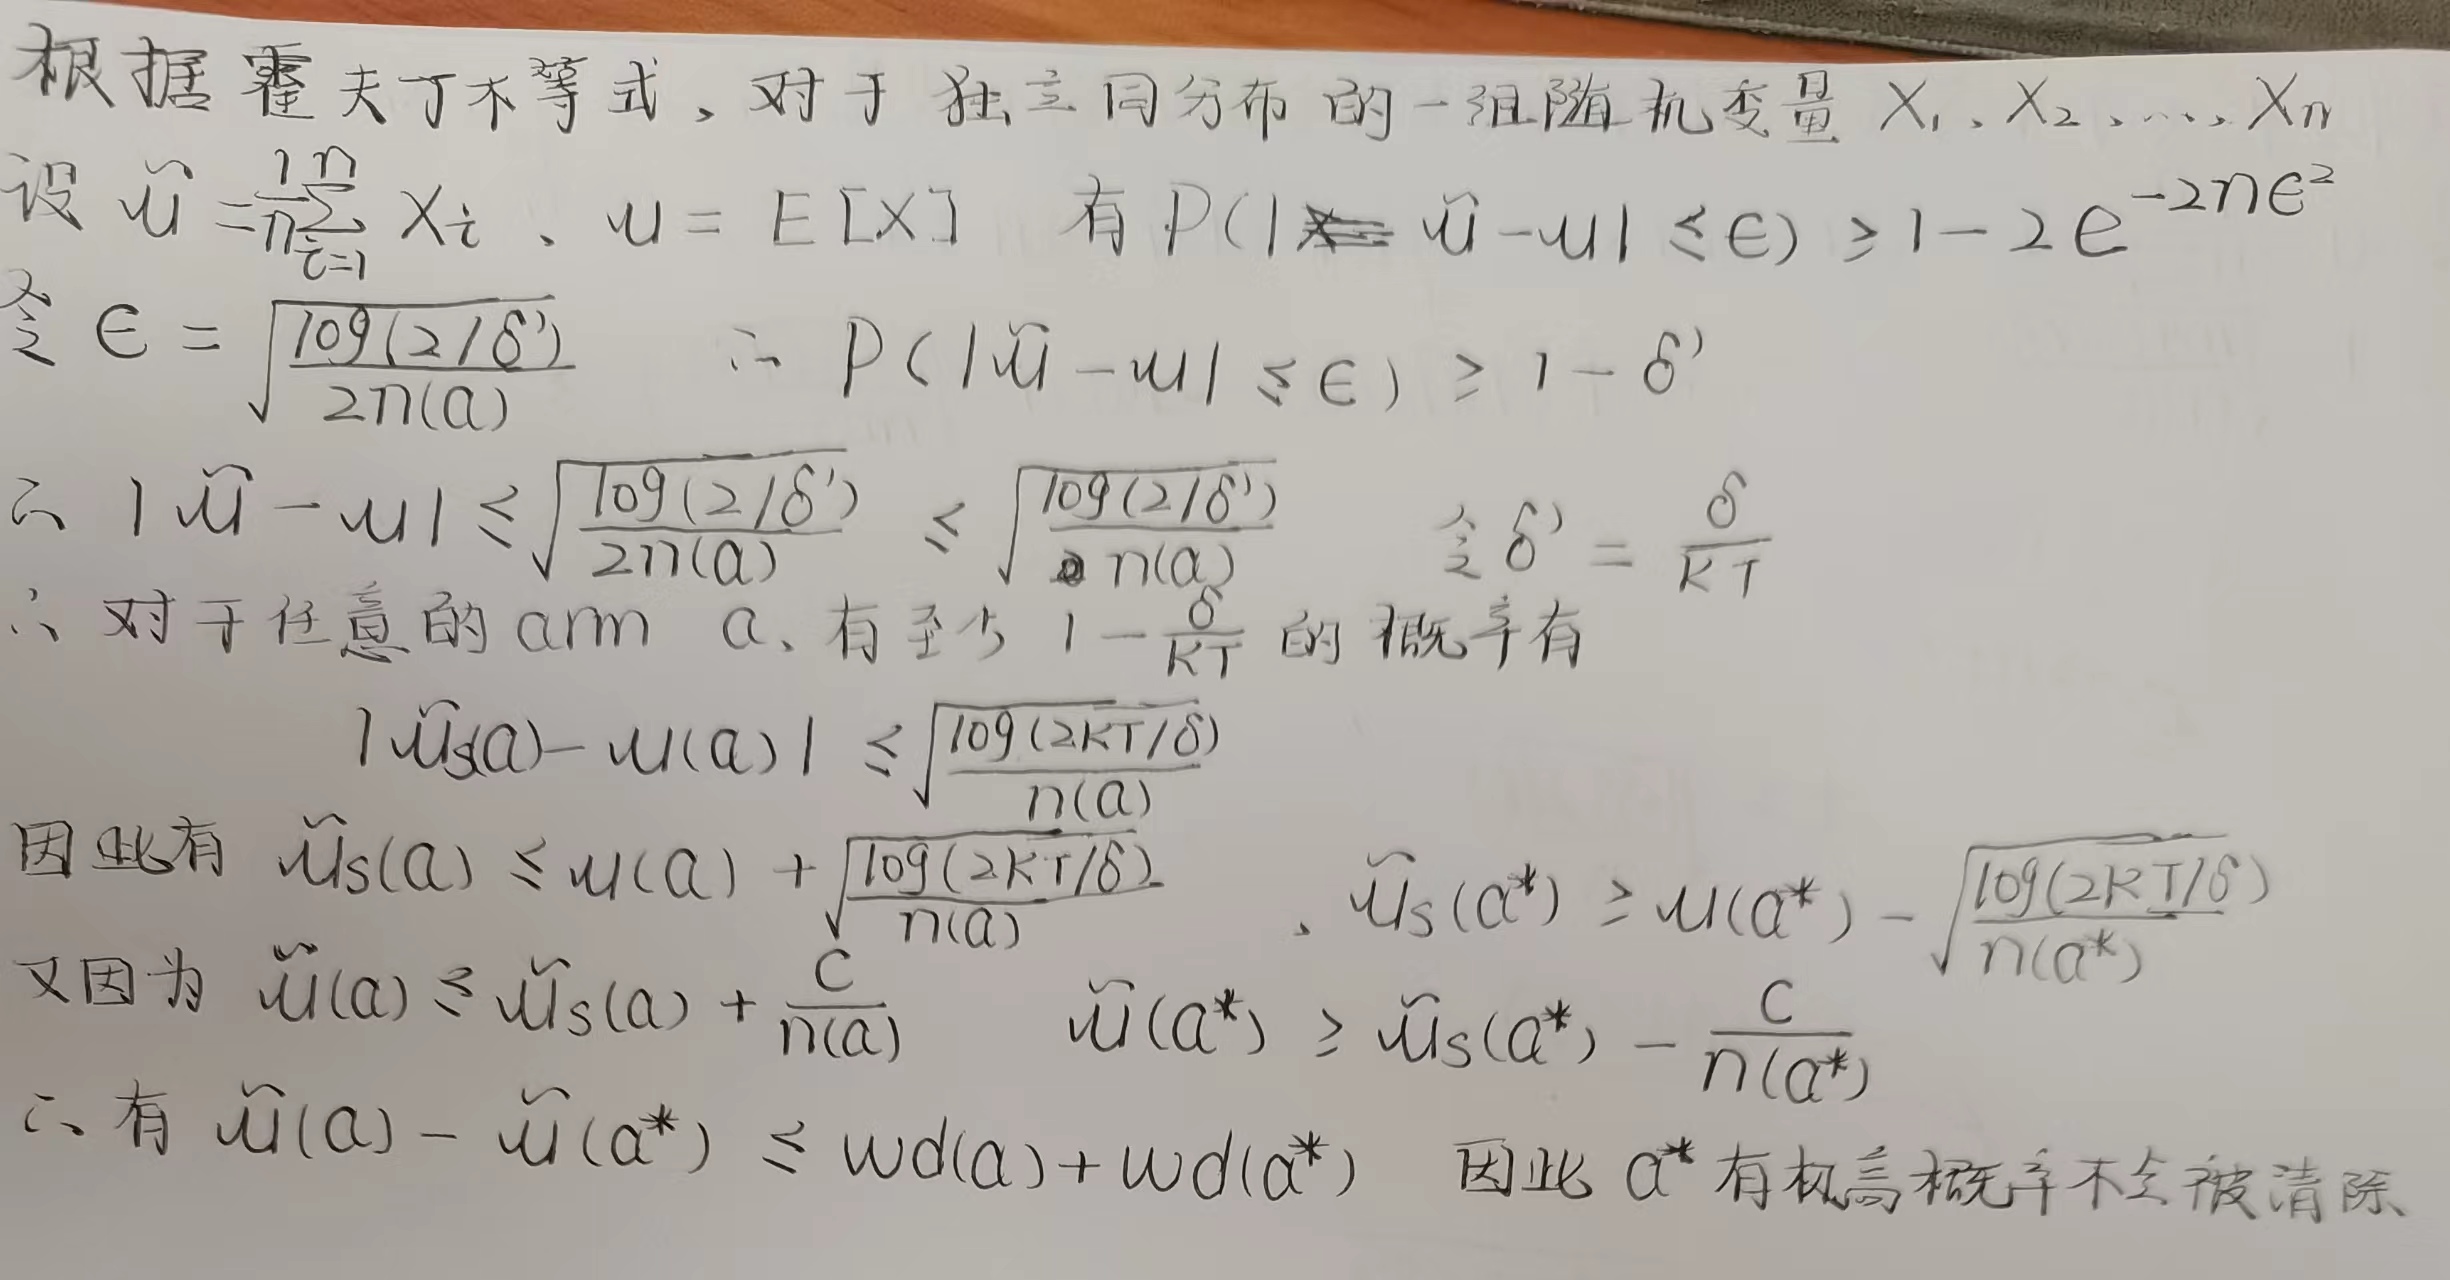 根据霍夫丁不等式、对于独立同分布的一组随机变量 X₁、X₂、…、Xₙ
设 ũ = 1/n ∑_{i=1}^{n} Xᵢ 、u = E[X] 有 P(|ũ-u| ≤ ϵ) ≥ 1-2e^{-2nϵ²}
令 ϵ = √(log(2/δ')/2n(a)) ∴ P(|ũ-u| ≤ ϵ) ≥ 1-δ'
∴ |ũ-u| ≤ √(log(2/δ')/2n(a)) ≤ √(log(2/δ')/n(a)) 令 δ' = δ/KT
∴ 对于任意的 arm a、有至少 1-δ/KT 的概率有
|ũs(a)-u(a)| ≤ √(log(2KT/δ)/n(a))
因此有 ũs(a) ≤ u(a) + √(log(2KT/δ)/n(a)) 、ũs(a*) ≥ u(a*) - √(log(2KT/δ)/n(a*))
又因为 ũ(a) ≤ ũs(a) + C/n(a) ũ(a*) ≥ ũs(a*) - C/n(a*)
∴ 有 ũ(a) - ũ(a*) ≤ wd(a)+wd(a*) 因此 a* 有极高概率不会被清除